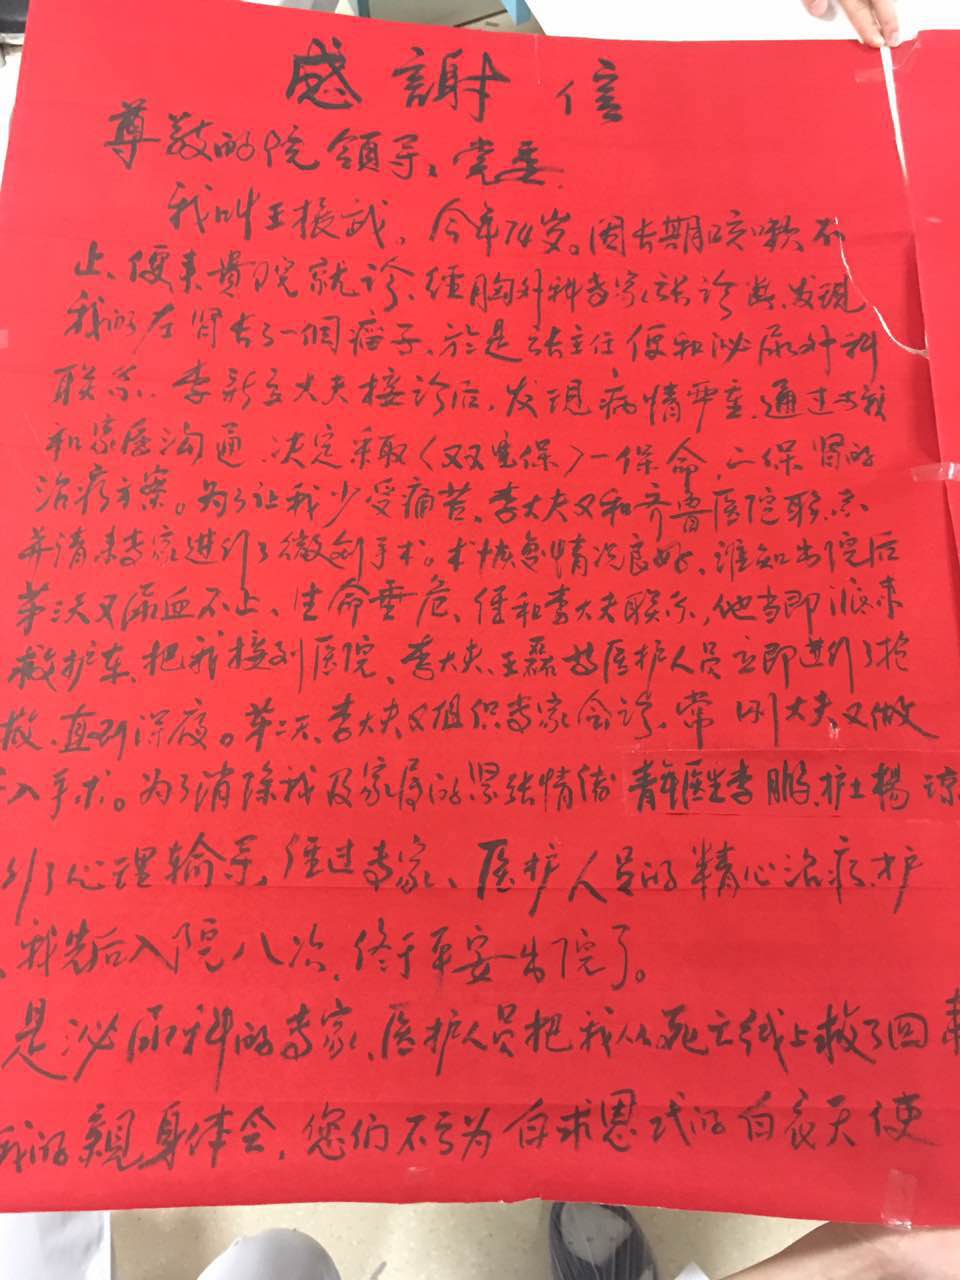 感謝信
尊敬的院领导、党委
我叫王振武，今年74岁。因长期咳嗽不
止、便来贵院就诊、经胸外科专家张诊断、发现
我的左肾长了一個瘤子、於是张主任便和泌尿外科
联系．李新立大夫接诊后，发现病情严重．通过与我
和家属沟通．决定采取〈双保〉一保命，二保肾的
治疗方案。为了让我少受痛苦、李大夫又和齐鲁医院联系
并请来专家进行了微创手术。术恢复情况良好、谁知出院后
第三天又尿血不止、生命垂危、经和李大夫联系，他当即派来
救护车．把我接到医院、李大夫、王磊等医护人员立即进行了抢
救．直到深夜。第二天、李大夫又组织专家会诊．常刚大夫又做
介入手术。为了消除我及家属的紧张情绪 青年医生李鹏、护士楊
行了心理输导，经过专家、医护人员的精心治疗、护
、我先后入院八次，终于平安出院了。
是泌尿科的专家、医护人员把我从死亡线上救了回来
我的親身体会，您们不亏为白求恩式的白衣天使